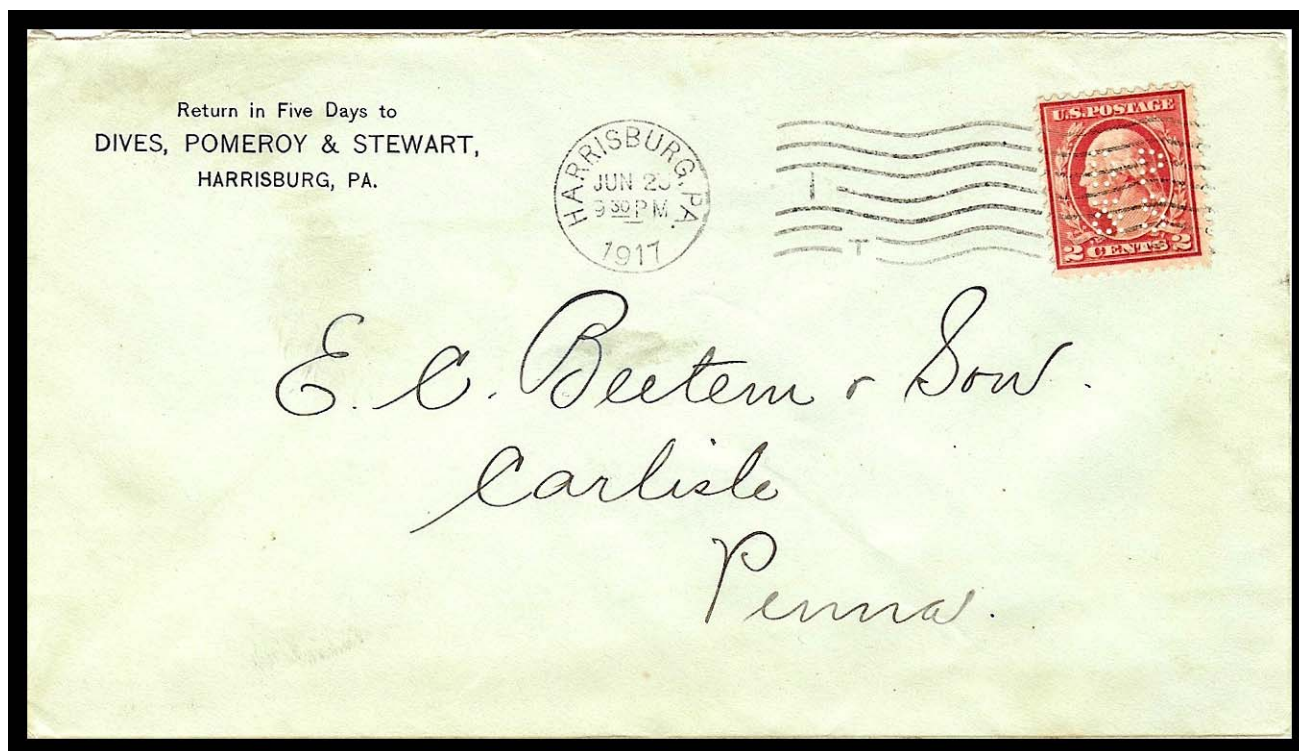 Return in Five Days to
DIVES, POMEROY & STEWART,
HARRISBURG, PA.
HARRISBURG, PA.
JUN
9 30 PM
1917
I
T
U.S. POSTAGE
2 CENTS 2
E. C. Beetem & Son.
Carlisle
Penna.